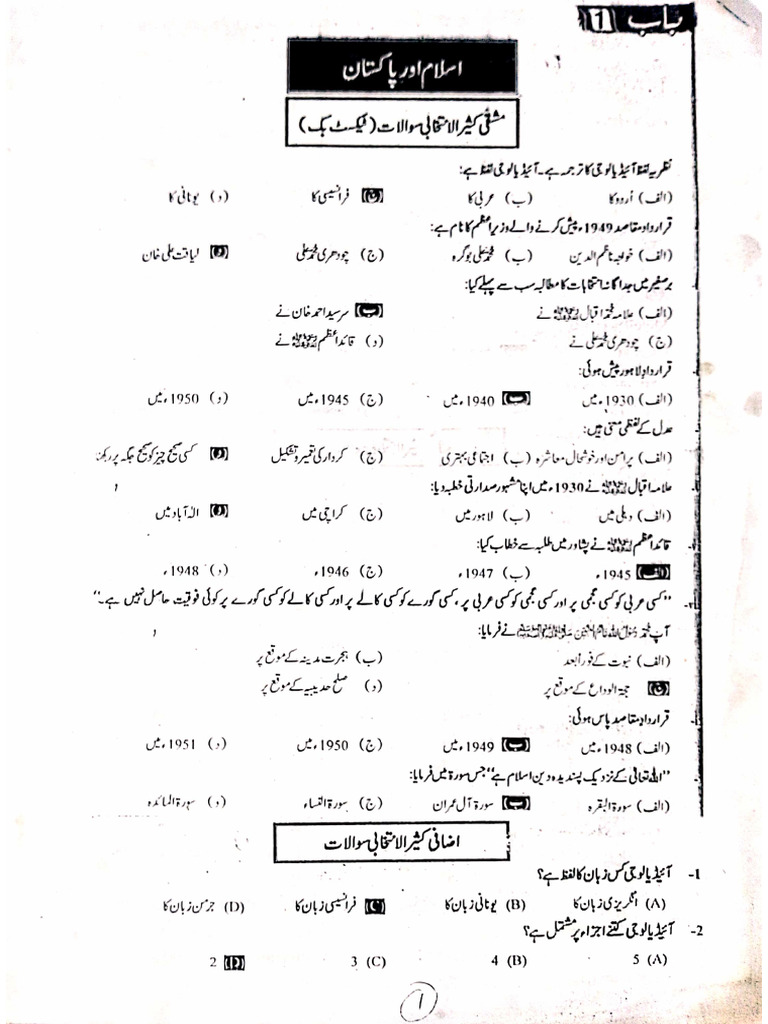 باب 1
اسلام اور پاکستان
مشقی کثیر الانتخابی سوالات (ٹیکسٹ بک)
نظریہ لفظ آئیڈیالوجی کا ترجمہ ہے۔ آئیڈیالوجی لفظ ہے:
(الف) اُردو کا (ب) عربی کا (ج) فرانسیسی کا (د) یونانی کا
قرارداد مقاصد 1949ء پیش کرنے والے وزیراعظم کا نام ہے:
(الف) خواجہ ناظم الدین (ب) محمد علی بوگرہ (ج) چودھری محمد علی (د) لیاقت علی خان
برصغیر میں جداگانہ انتخابات کا مطالبہ سب سے پہلے کیا:
(الف) علامہ محمد اقبال نے (ب) سرسید احمد خان نے
(ج) چودھری محمد علی نے (د) قائداعظم نے
قرارداد لاہور پیش ہوئی:
(الف) 1930ء میں (ب) 1940ء میں (ج) 1945ء میں (د) 1950ء میں
عدل کے لفظی معنی ہیں:
(الف) پرامن اور خوشحال معاشرہ (ب) اجتماعی بہتری (ج) کردار کی تعمیر و تشکیل (د) کسی صحیح چیز کو صحیح جگہ پر رکھنا
علامہ اقبال نے 1930ء میں اپنا مشہور صدارتی خطبہ دیا:
(الف) دہلی میں (ب) لاہور میں (ج) کراچی میں (د) الہ آباد میں
قائداعظم نے پشاور میں طلبہ سے خطاب کیا:
(الف) 1945ء (ب) 1947ء (ج) 1946ء (د) 1948ء
"کسی عربی کو کسی عجمی پر اور کسی عجمی کو کسی عربی پر، کسی گورے کو کسی کالے پر اور کسی کالے کو کسی گورے پر کوئی فوقیت حاصل نہیں ہے۔"
آپ محمد رسول اللہ خاتم النبیین نے فرمایا:
(الف) نبوت کے فوراً بعد (ب) ہجرت مدینہ کے موقع پر
(ج) حجۃ الوداع کے موقع پر (د) صلح حدیبیہ کے موقع پر
قرارداد مقاصد پاس ہوئی:
(الف) 1948ء میں (ب) 1949ء میں (ج) 1950ء میں (د) 1951ء میں
"اللہ تعالیٰ کے نزدیک پسندیدہ دین اسلام ہے" جس سورۃ میں فرمایا:
(الف) سورۃ البقرہ (ب) سورۃ آل عمران (ج) سورۃ النساء (د) سورۃ المائدہ
اضافی کثیر الانتخابی سوالات
1- آئیڈیالوجی کس زبان کا لفظ ہے؟
(A) انگریزی زبان کا (B) یونانی زبان کا (C) فرانسیسی زبان کا (D) جرمن زبان کا
2- آئیڈیالوجی کتنے اجزاء پر مشتمل ہے؟
(A) 5 (B) 4 (C) 3 (D) 2
1